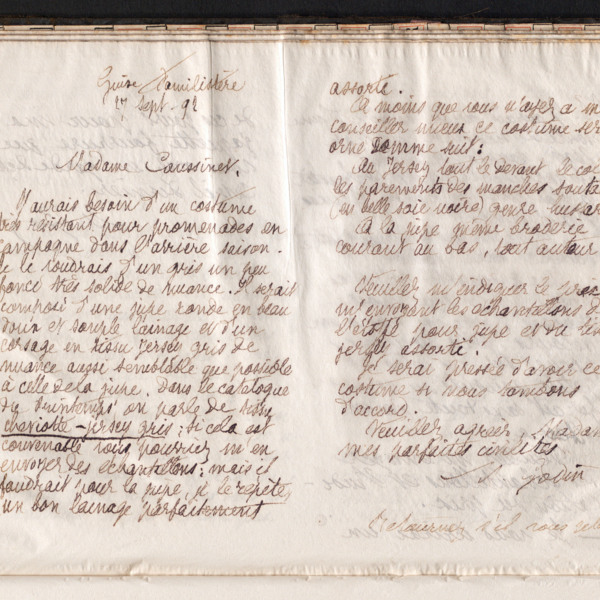 Guise Familistère
17 Sept. 92
Madame Caussinet.
J'aurais besoin d'un costume
très résistant pour promenades en
campagne dans l'arrière saison.
Je le voudrais d'un gris un peu
foncé très solide de nuance. Il serait
composé d'une jupe ronde en beau
doux et souple lainage et d'un
corsage en tissu Jersey gris de
nuance aussi semblable que possible
à celle de la jupe. Dans le catalogue
du Printemps on parle de tissu
cheviotte-jersey gris; si cela est
convenable vous pourriez m'en
envoyer des échantillons; mais il
faudrait pour la jupe, je le répète,
un bon lainage parfaitement
assorti.
A moins que vous n'ayez à m
conseiller mieux ce costume ser
orné comme suit:
Au Jersey tout le devant le col
les parements des manches souta
(en belle soie noire) genre hussar
A la jupe même broderie
courant au bas, tout autour
Veuillez m'indiquer le prix
m'envoyant les échantillons d
l'étoffe pour jupe et du ti
jersey assorti.
Je serai pressée d'avoir ce
costume si nous tombons
d'accord.
Veuillez agréer, Madam
mes parfaites civilités
Godin
Retourner s'il vous pla